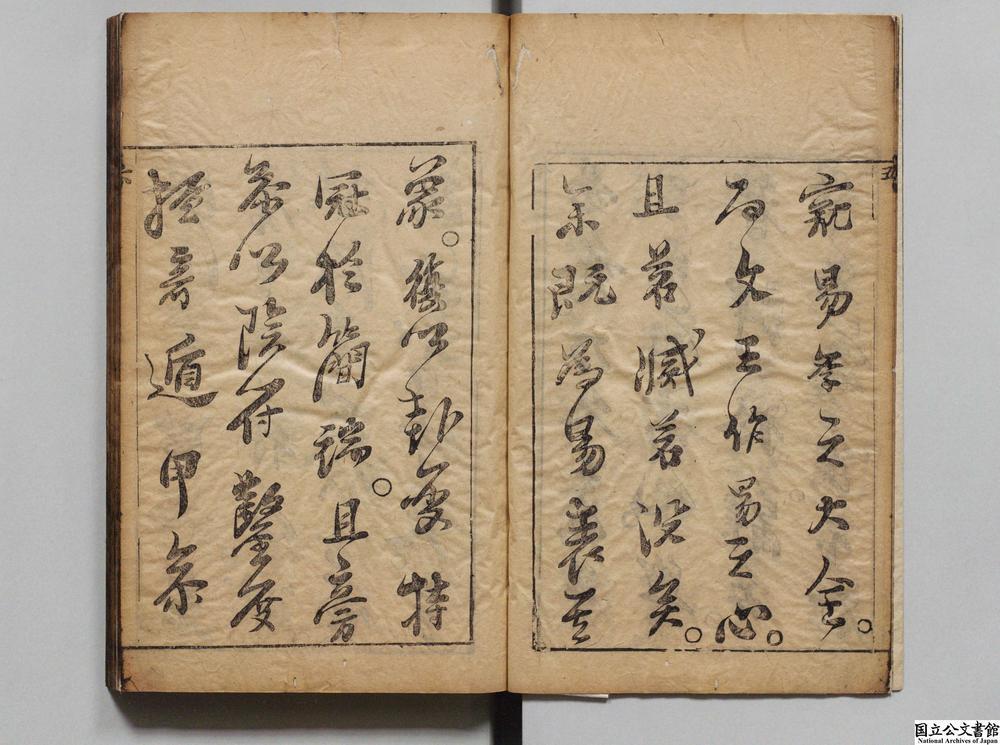 五
窺易學之大全。
而文王作易之心。
且若滅若沒矣。
余既為易表其
復以卦變特
冠於簡端。且旁
參以陰符鑿度
握奇遁甲參
六
国立公文書館
National Archives of Japan